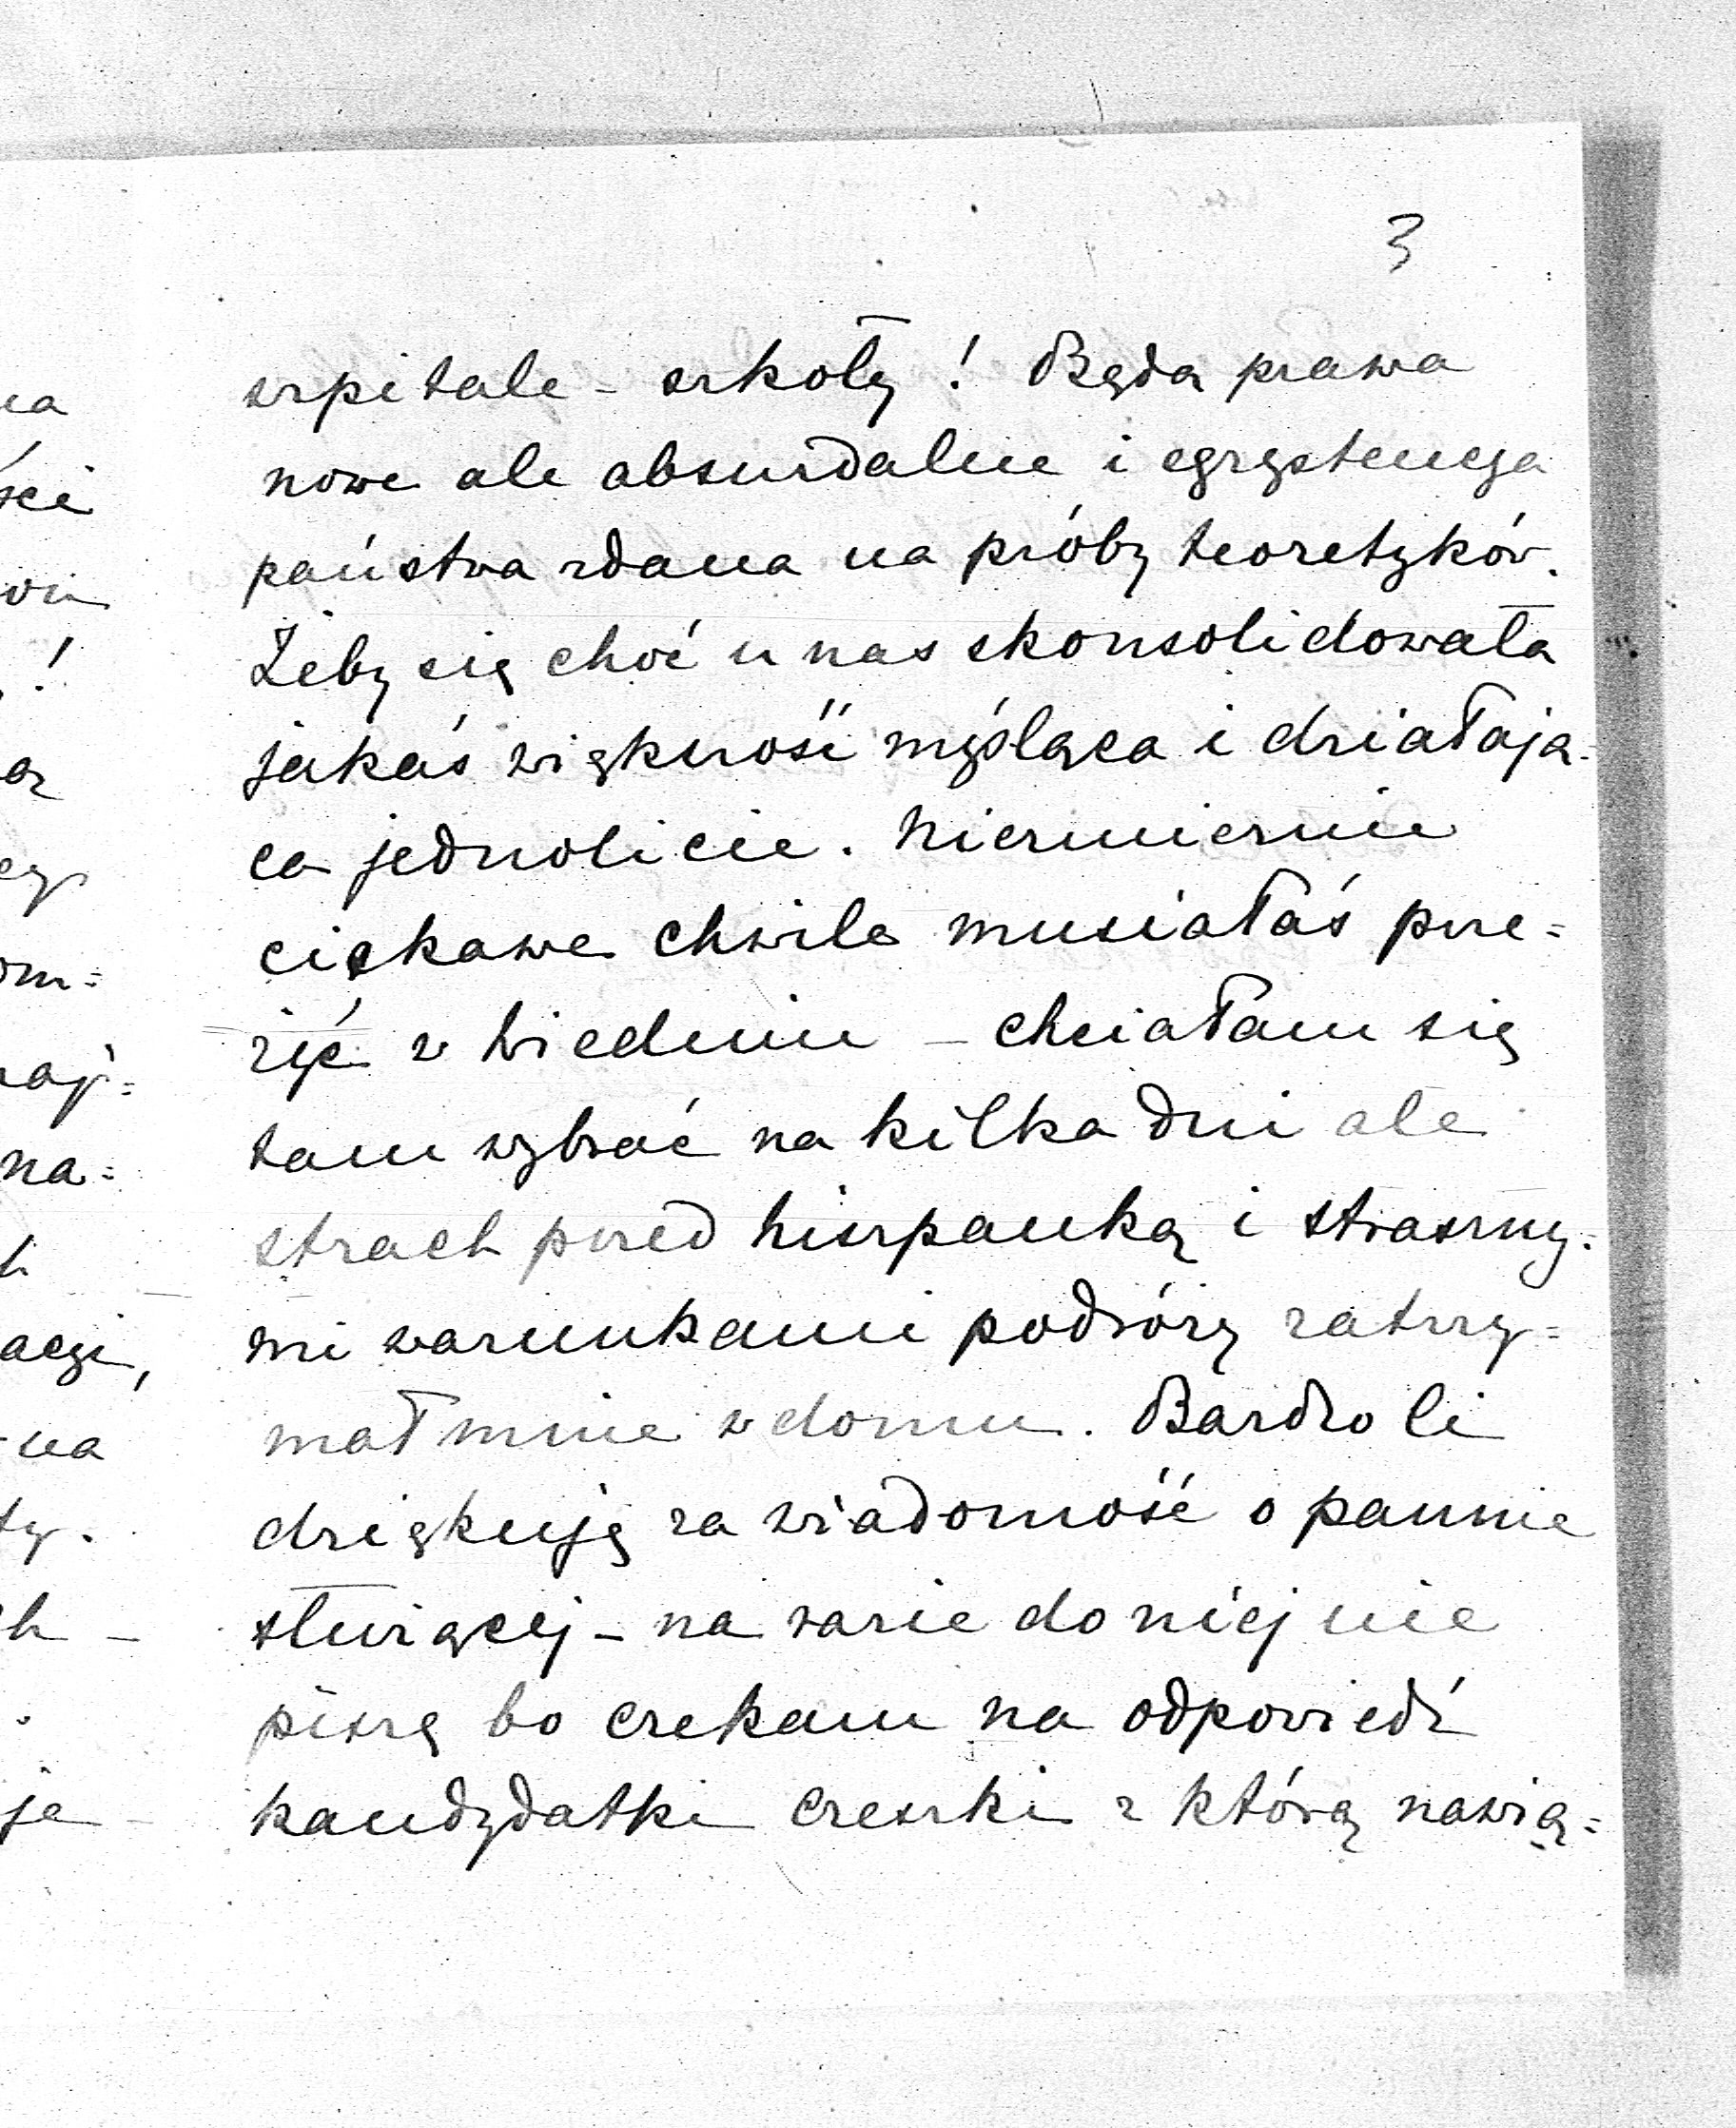 3
szpitale – szkoły! Będą prawa
nowe ale absurdalne i egzystencya
państwa zdana na próby teoretyków.
Żeby się choć u nas skonsolidowała
jakaś większość myśląca i działają=
ca jednolicie. Niezmiernie
ciekawe chwile musiałaś prze=
żyć w Wiedniu – chciałam się
tam wybrać na kilka dni ale
strach przed hiszpanką i straszny=
mi warunkami podróży zatrzy=
mał mnie w domu. Bardzo Ci
dziękuję za wiadomość o pannie
służącej – na razie do niej nie
piszę bo czekam na odpowiedź
kandydatki czeszki z którą nawią=